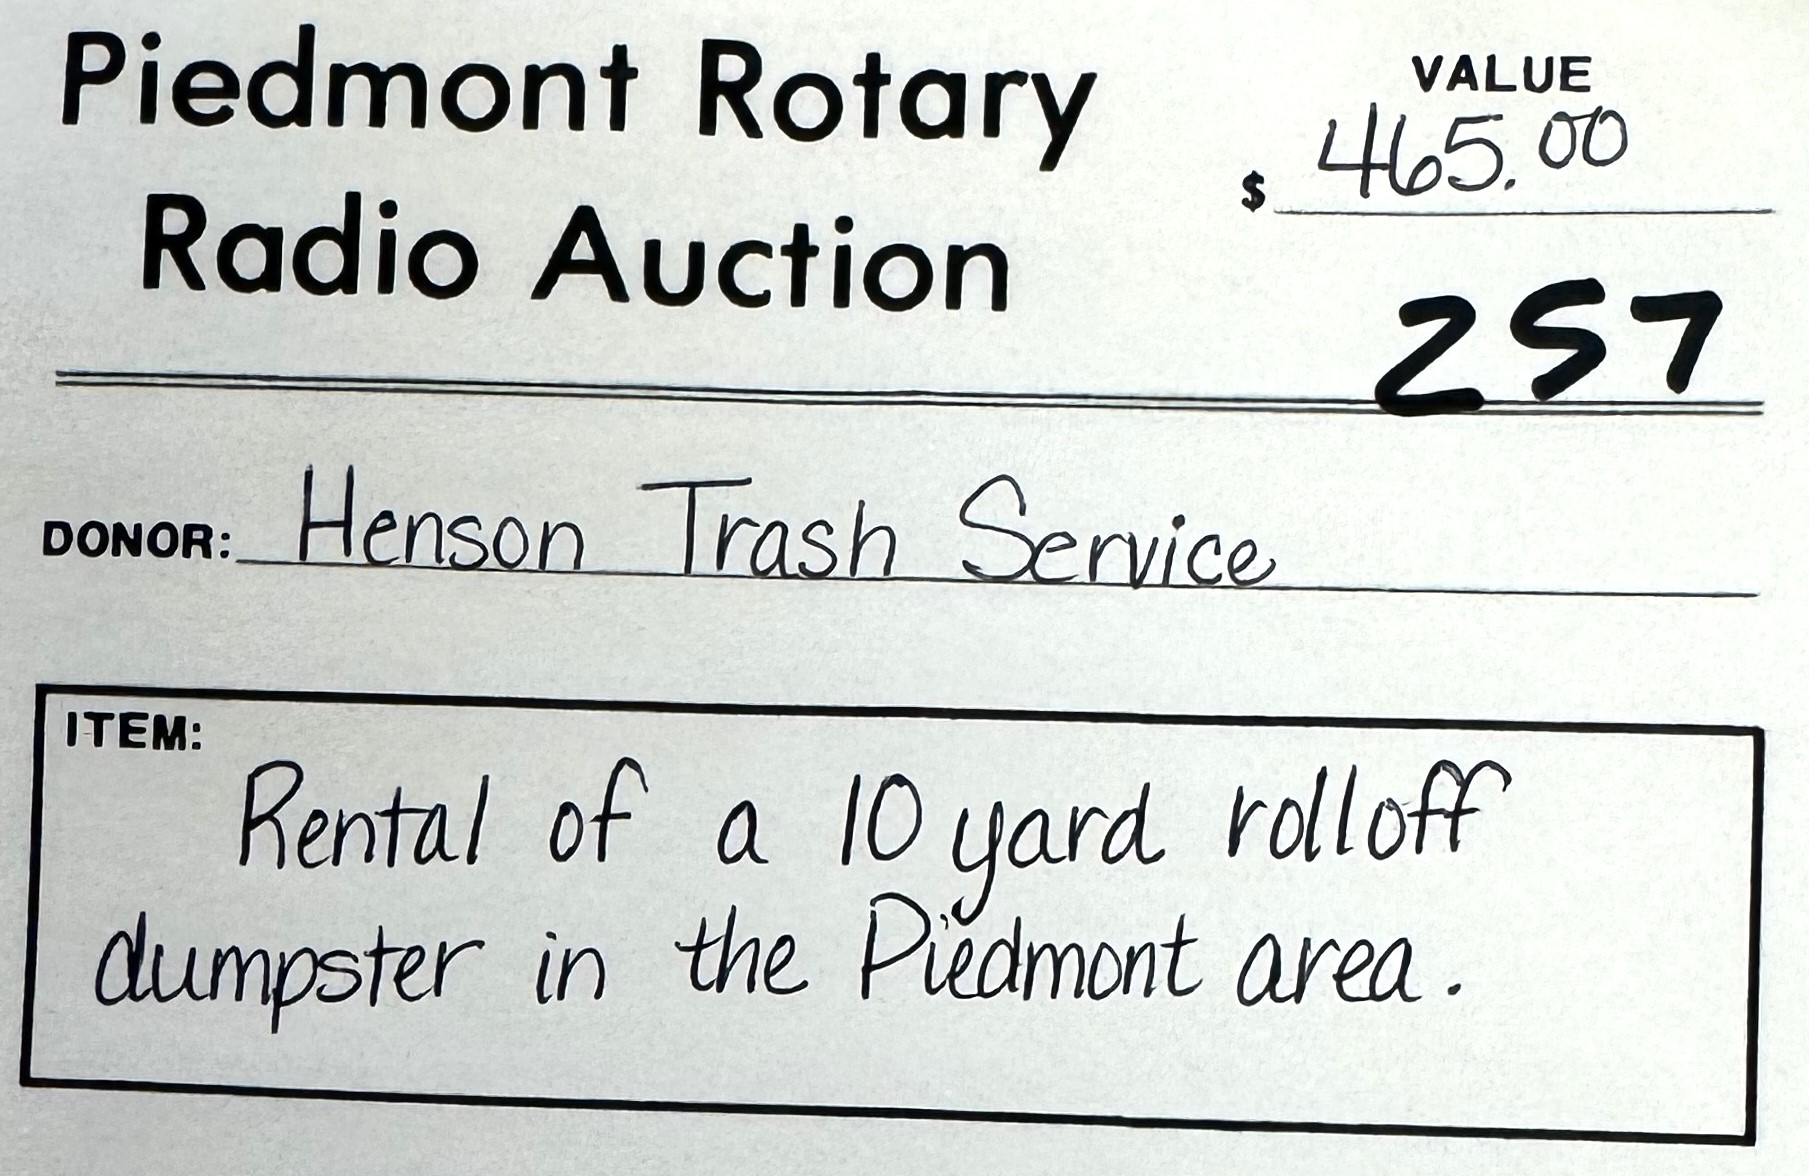 Piedmont Rotary
Radio Auction
VALUE
$ 465.00
257
DONOR: Henson Trash Service
ITEM:
Rental of a 10 yard rolloff
dumpster in the Piedmont area.